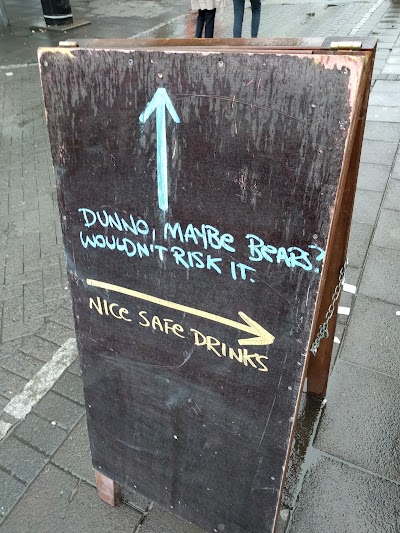 DUNNO, MAYBE BEARS?
WOULDN'T RISK IT.
NICE SAFE DRINKS